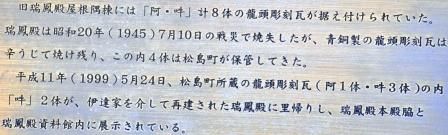 旧瑞鳳殿屋根隅棟には「阿・吽」計8体の龍頭彫刻瓦が据え付けられていた。
瑞鳳殿は昭和20年(1945)7月10日の戦災で焼失したが、青銅製の龍頭彫刻瓦は
辛うじて焼け残り、この内4体は松島町が保管してきた。
平成11年(1999)5月24日、松島町所蔵の龍頭彫刻瓦(阿1体・吽3体)の内
「吽」2体が、伊達家を介して再建された瑞鳳殿に里帰りし、瑞鳳殿本殿脇と
瑞鳳殿資料館内に展示されている。